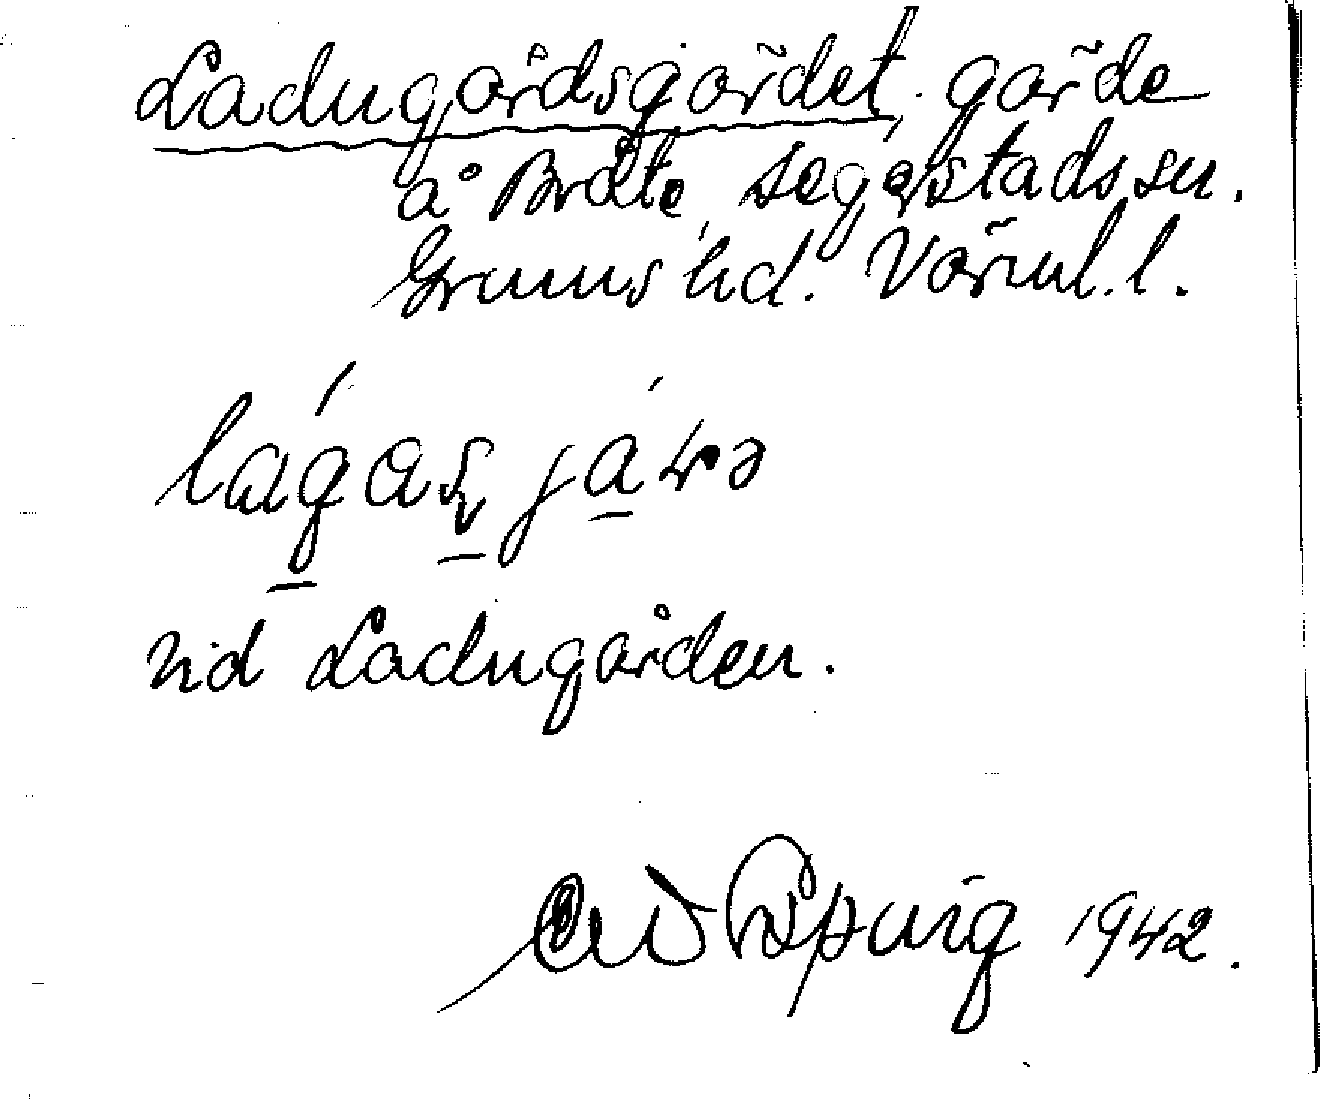 Ladugårdsgärdet, gärde
å Bråte, Segerstads sn.
Grums hd. Värml. l.
lágaʂ já rə
vid Ladugården.
1942.